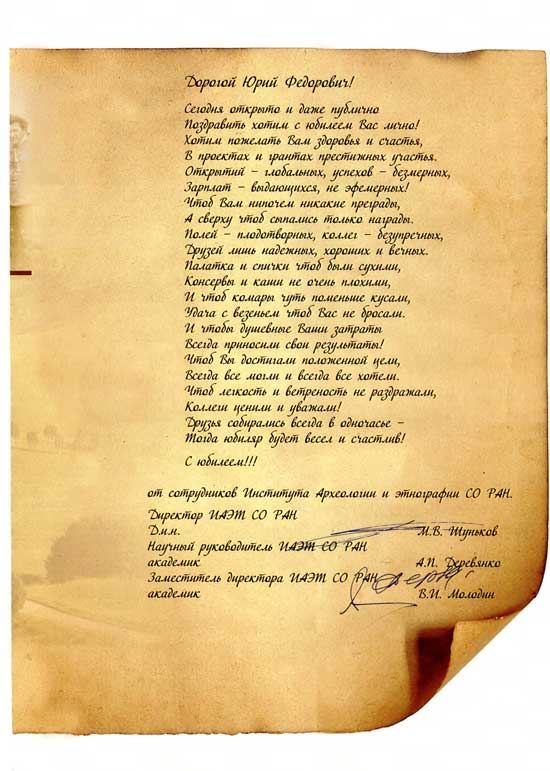 Дорогой Юрий Федорович!
Сегодня открыто и даже публично
Поздравить хотим с юбилеем Вас лично!
Хотим пожелать Вам здоровья и счастья,
В проектах и грантах престижных участья.
Открытий – глобальных, успехов – безмерных,
Зарплат – выдающихся, не эфемерных!
Чтоб Вам нипочем никакие преграды,
А сверху чтоб сыпались только награды.
Полей – плодотворных, коллег – безупречных,
Друзей лишь надежных, хороших и вечных.
Палатка и спички чтоб были сухими,
Консервы и каши не очень плохими,
И чтоб комары чуть поменьше кусали,
Удача с везеньем чтоб Вас не бросали.
И чтобы душевные Ваши затраты
Всегда приносили свои результаты!
Чтоб Вы достигали положенной цели,
Всегда все могли и всегда все хотели.
Чтоб легкость и ветреность не раздражали,
Коллеги ценили и уважали!
Друзья собирались всегда в одночасье –
Тогда юбиляр будет весел и счастлив!
С юбилеем!!!
от сотрудников Института Археологии и этнографии СО РАН.
Директор ИАЭТ СО РАН
Д.и.н. М.В. Шуньков
Научный руководитель ИАЭТ СО РАН
академик А.П. Деревянко
Заместитель директора ИАЭТ СО РАН
академик В.И. Молодин